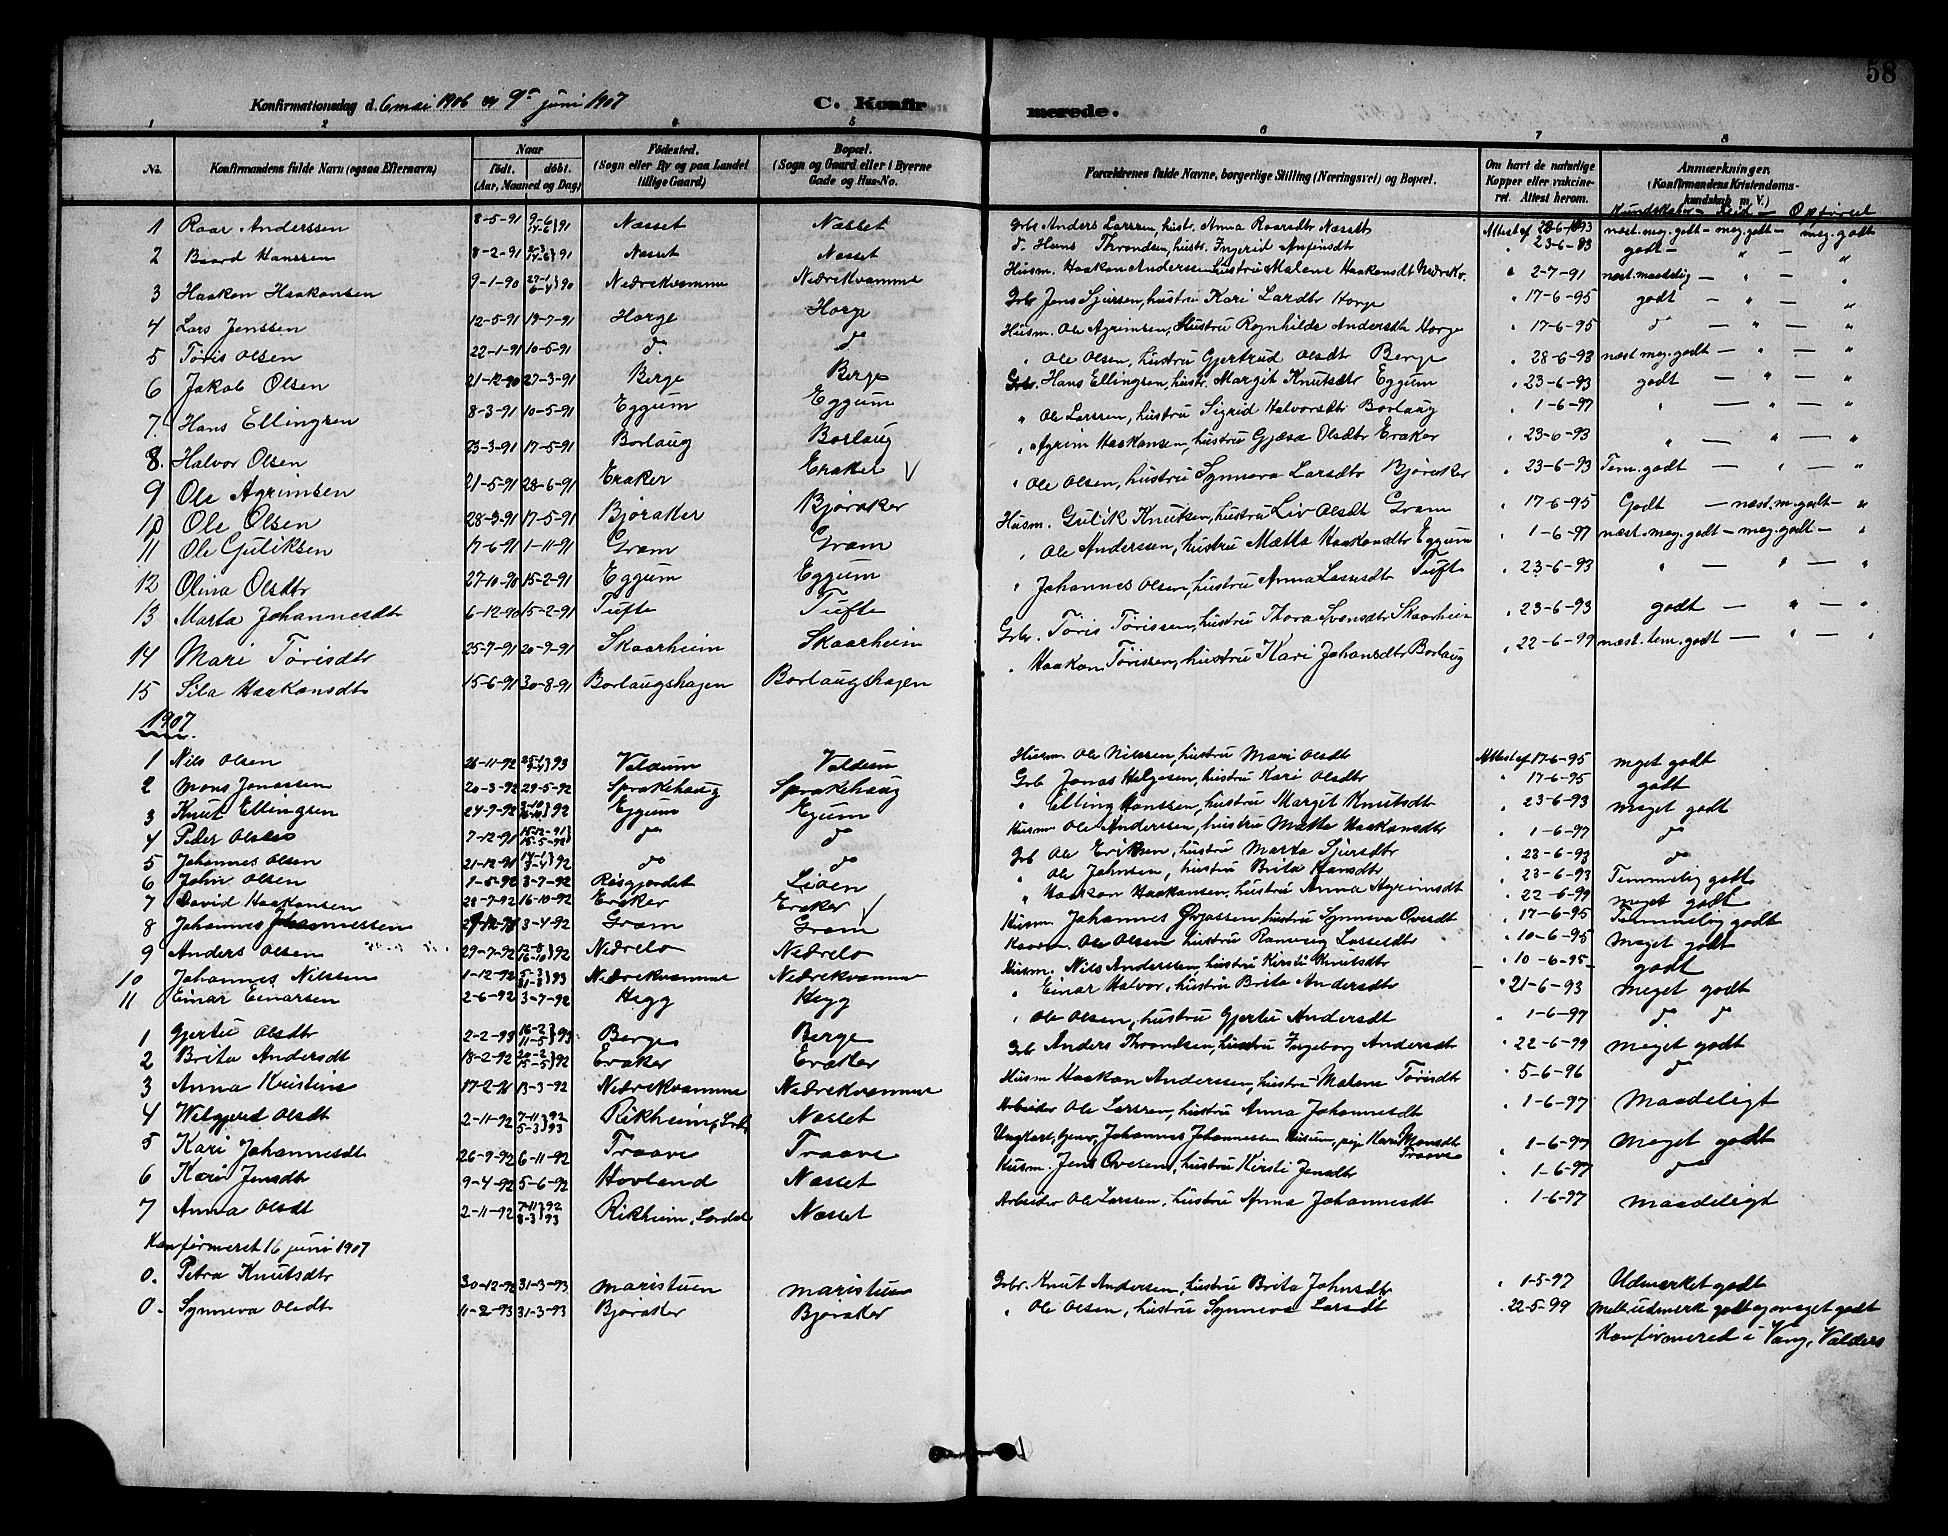 58
Konfirmationsdag d. 6 mai 1906 og 9de juni 1907 C. Konfirmerede.
1 2 3 4 5 6 7 8
No. Konfirmandens fulde Navn (ogsaa Efternavn) Naar født. døbt. (Aar, Maaned og Dag) Fødested. (Sogn eller By og paa Landet tillige Gaard) Bopæl. (Sogn og Gaard eller i Byerne Gade og Hus-No. Forældrenes fulde Navne, borgerlige Stilling (Næringsvei) og Bopæl. Om havt de naturlige Kopper eller vakcineret. Attest herom. Anmærkninger (Konfirmandens Kristendomskundskab m. V.)
Kundskaber – Flid – Opførsel
1 Roar Anderssen 8-5-91 9-6 14-6}91 Næsset Næsset Grbr Anders Larssen, hustr. Anna Roarsdtr Næssett Attest af 28-6-93 næst. meg. godt – meg. godt – meg. godt
2 Baard Hanssen 8-2-91 91 Næsset Næsset do Hans Throndsen, hustr. Ingerid Anfinsdtr " 23-6-83 godt – " – "
3 Haakon Haakonsen 9-1-90 27-1 6-4}90 Nedrekvamme Nedrekvamme Husm. Haakon Anderssen hustru Malene Haakonsdt Nedrekv. " 2-7-91 næst. maadelig – " – "
4 Lars Jenssen 12-5-91 19-7-91 Horge Horge Grbr Jens Sjursen, hustru Kari Larsdtr Horge " 17-6-95 godt – " – "
5 Tøris Olsen 22-1-91 10-5-91 do do Husm. Ole Agrimsen, Hustru Rognhilde Andersdtr Horge " 17-6-95 do – " – "
6 Jakob Olsen 21-12-90 27-3-91 Berge Berge " Ole Olsen, hustru Gjertrud Olsdt Berge " 28-6-93 næst meg. godt – " – "
7. Hans Ellingsen 8-3-91 10-5-91 Eggum Eggum Grbr. Hans Ellingsen, hustr. Margit Knutsdtr Eggum " 23-6-93 godt – " – "
8. Halvor Olsen 23-3-91 17-5-91 Borlaug Borlaug " Ole Larssen, hustru Sigrid Halvorsdt Borlaug " 1-6-97 " – " – "
9 Ole Agrimsen 21-5-91 28-6-91 Eraker Eraker V " Agrim Haakonsen, hustru Gjøsa Olsdtr Eraker " 23-6-93 " – " – "
10 Ole Olsen 28-3-91 17-5-91 Bjøraker Bjøraker " Ole Olsen, hustru Synneva Larsdtr Bjøraker " 23-6-93 Tem. godt – " – "
11 Ole Guliksen 17-6-91 1-11-91 Gram Gram Husm. Gulik Knutsen, hustru Liv Olsdt Gram " 17-6-95 Godt – næst. m. godt – "
12 Olina Olsdtr 27-10-90 15-2-91 Eggum Eggum " Ole Anderssen, hustru Mætta Haakonsdtr Eggum " 1-6-97 næst. meg. godt – meg. godt – "
13 Marta Johannesdtr 6-12-90 15-2-91 Tufte Tufte " Johannes Olsen, hustru Anna Larsdtr Tufte " 23-6-93 " – " – "
14 Mari Tørisdtr 25-7-91 20-9-91 Skaarheim Skaarheim Grbr. Tøris Tørissen, hustru Thora Svensdtr Skaarheim " 23-6-93 godt – " – "
15 Sila Haakonsdtr 15-6-91 30-8-91 Borlaugshagen Borlaugshagen " Haakon Tørissen, hustru Kari Johansdtr Borlaug " 22-6-99 næst. tem. godt – " – "
1907
1 Nils Olsen 26-11-92 93 Voldum Voldum Husm. Ole Nilssen, hustru Mari Olsdt Attest af 17-6-95 meget godt
2 Mons Jonassen 20-3-92 29-5-92 Sprakehaug Sprakehaug Grb Jonas Helgesen, hustru Kari Olsdtr " 17-6-95 godt
3 Knut Ellingsen 24-9-92 92 Eggum Egum " Elling Hanssen, hustru Margit Knutsdtr " 23-6-93 meget godt
4 Peder Olsen 7-12-91 15-12-91 15-5-92} do do Husm Ole Anderssen, hustru Mætta Haakonsdtr " 1-6-97 do
5 Johannes Olsen 21-12-91 92 do do Grb Ole Eriksen, hustru Marta Sjursdtr " 23-6-93 do
6 John Olsen 1-5-92 3-7-92 Røsgjordet Lien " Ole Johnsen, hustru Brita Hansdtr " 23-6-93 Temmelig godt
7 David Haakonsen 28-7-92 16-10-92 Eraker Eraker V " Haakon Haakonsen, hustru Anna Agrimsdt " 22-6-99 meget godt
8 Johannes Johannessen 3-4-92 Gram Gram Husm. Johannes Øvjassen, hustru Synneva Ovesdt " 17-6-95 Temmelig godt
9 Anders Olsen 29-7-92 92 Nedrelo Nedrelo Ole Olsen hustru Ranveig Lassesdtr " 10-6-95 Meget godt
10 Johannes Nilssen 1-12-92 93 Nedrekvamme Nedrekvamme Husm. Nils Anderssen, hustru Kirsti Knutsdtr " 10-6-95 godt
11 Einar Einarsen 2-6-92 3-7-92 Hegg Hegg " Einar Halvor, hustru Brita Andersdt " 21-6-93 Meget godt
1 Gjertie Olsdtr 2-2-93 16-2 11-5}93 Berge Berge " Ole Olsen, hustru Gjertie Andersdt " 1-6-97 do do
2 Brita Andersdt 18-2-92 92 Eraker Eraker Grb Anders Throndsen, hustru Ingeborg Andersdt " 22-6-99 meget godt
3 Anna Kristine 17-2-91 13-3-92 Nedrekvamme Nedrekvamme Husm Haakon Anderssen, hustru Malene Tørisdtr " 5-6-96 do
4 Welgjerd Olsdt 2-11-92 7-11 92 5-3}93 Rikheim, Lrd. Næsset Arbeider Ole Larssen, hustru Anna Johannesdt " 1-6-97 Maadeligt
5 Kari Johannesdt 26-9-92 6-11-92 Traave Traave Ungkarl, Johannes Johannessen pige Kari Monsdtr Traave " 1-6-97 Meget godt
6 Kari Jensdtr 9-4-92 5-6-92 Hovland Næsset Husm. Jens Ovesen, hustru Kirsti Jensdtr " 1-6-97 do
7 Anna Olsdt 2-11-92 7-11 92 8-3}93 Rikheim, Lærdal Næsset Arbeider Ole Larssen, hustru Anna Johannesdt " 1-6-97 maadeligt
Konfirmeret 16 juni 1907
0. Petra Knutsdtr 30-12-92 31-3-93 Maristuen Maristuen Grbr. Knut Andersen, hustru Brita Johnsdtr " 1-5-97 Udmerket godt
0. Synneva Olsdtr 11-2-93 31-3-93 Bjøraker Bjøraker " Ole Olsen, hustru Synneva Larsdt " 22-5-99 Mell. udmerk godt og meget godt
Konfirmered i Vang, Valders